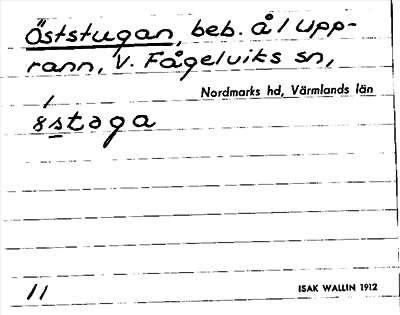 Öststugan, beb. å / Upp-
rann, V. Fågelviks sn,
Nordmarks hd, Värmlands län
8́stəga
11
ISAK WALLIN 1912